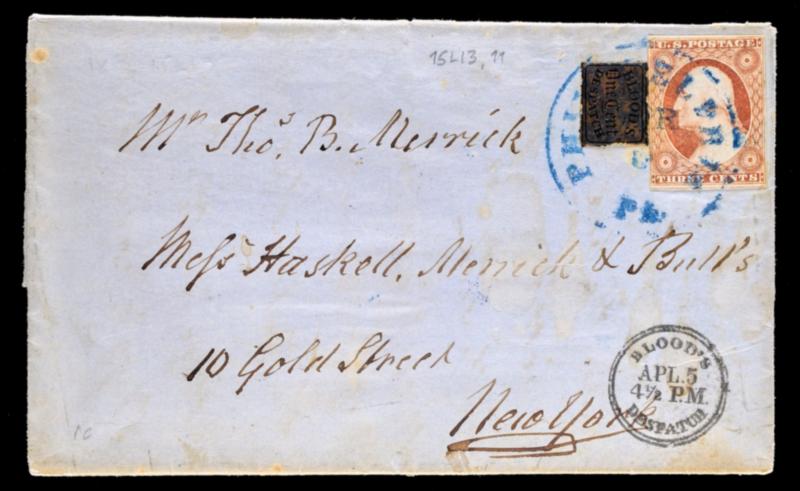 15L13, 11
BLOOD'S
One Cent
DESPATCH
U.S. POSTAGE
THREE CENTS
PHIL
PM
Mr Thos. B. Merrick
Messr Haskell, Merrick & Bull's
10 Gold Street
New York
BLOOD'S
APL. 5
4½ P.M.
DESPATCH